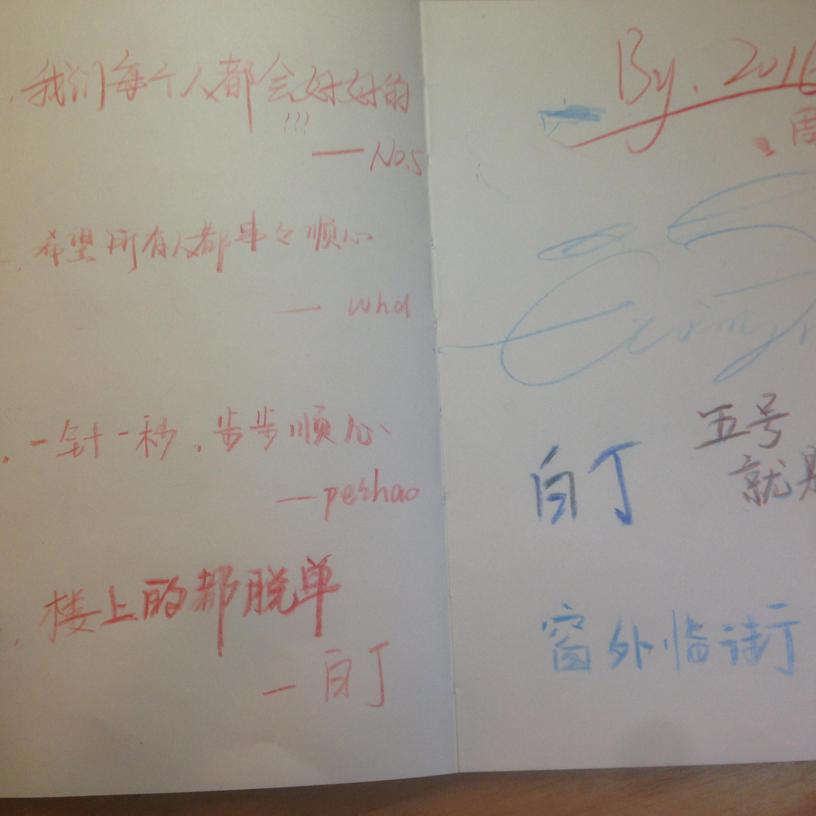 我们每个人都会好好的
!!!
— No.5
希望所有人都事々顺心
— whd
一针一秒，步步顺心
— peshao
楼上的都脱单
— 白丁
By. 2016
周
五号
就是
白丁
窗外临街